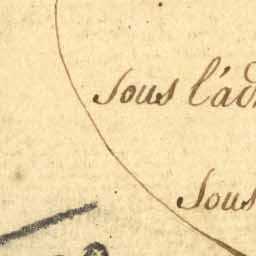 Sous l'ad
Sous